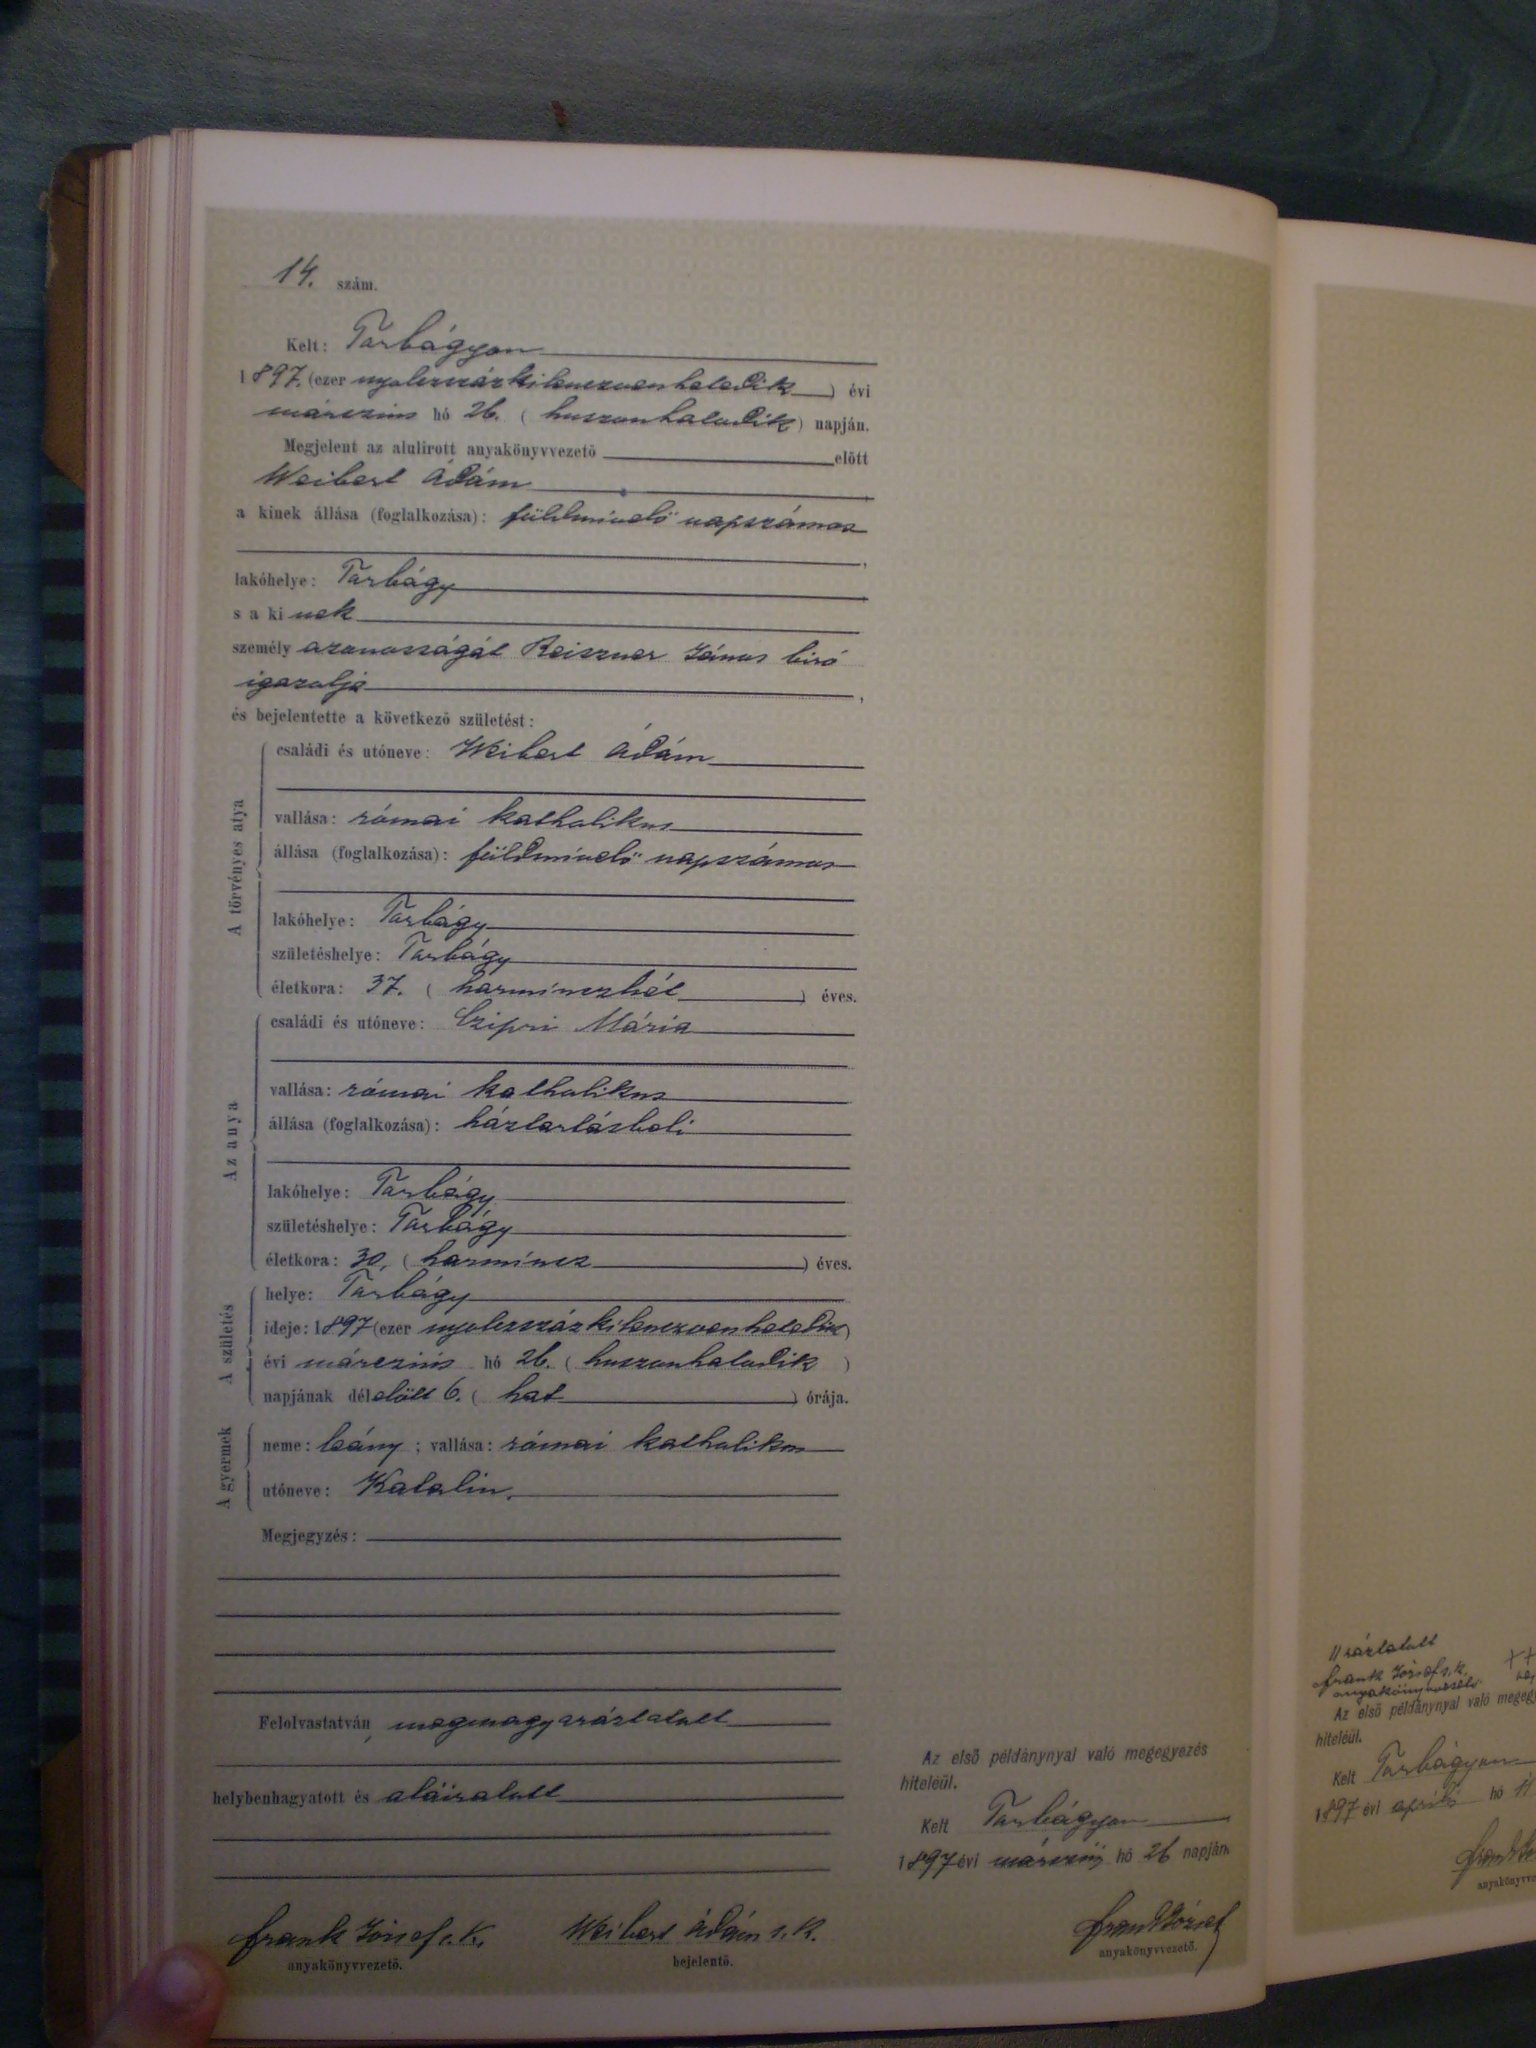 14. szám.
Kelt: Torbágyon
1897. (ezer nyolczszázkilenczvenhetedik) évi
márczius hó 26. (huszonhatodik) napján.
Megjelent az alulirott anyakönyvvezető előtt
Weibert Ádám,
a kinek állása (foglalkozása): földmívelő napszámos
,
lakóhelye: Torbágy,
s a kinek
személy azonosságát Reiszner János biró
igazolja,
és bejelentette a következő születést:
A törvényes atya
családi és utóneve: Weibert Ádám
vallása: római katholikus
állása (foglalkozása): földmívelő napszámos
lakóhelye: Torbágy
születéshelye: Torbágy
életkora: 37. (harminczhét) éves.
Az anya
családi és utóneve: Czipri Mária
vallása: római katholikus
állása (foglalkozása): háztartásbeli
lakóhelye: Torbágy
születéshelye: Torbágy
életkora: 30. (harmincz) éves.
A születés
helye: Torbágy
ideje: 1897 (ezer nyolczszázkilenczvenhetedik)
évi márczius hó 26. (huszonhatodik)
napjának délelőtt 6. (hat) órája.
A gyermek
neme: leány; vallása: római katholikus
utóneve: Katalin.
Megjegyzés:
Felolvastatván, megmagyaráztatott
helybenhagyatott és aláiratott
Frank József s.k. Weibert Ádám s.k.
anyakönyvvezető. bejelentő.
Az első példánynyal való megegyezés
hiteléül.
Kelt Torbágyon
1897 évi márczius hó 26 napján.
Frank József
anyakönyvvezető.
Frank József s.k.
anyakönyvvezető
Az első példánynyal való
hiteléül.
Kelt Torbágyon
1897 évi április hó 11